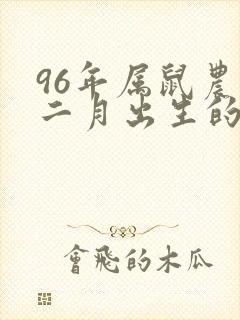 96年属鼠農
二月出生的
會飛的木瓜